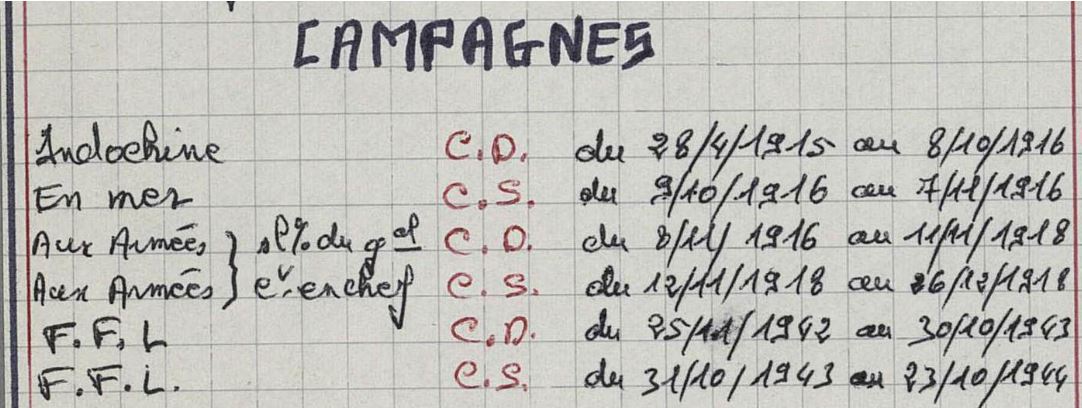 CAMPAGNES
Indochine C.D. du 28/4/1915 au 8/10/1916
En mer C.S. du 9/10/1916 au 7/11/1916
Aux Armées } s/s % du gal C.D. du 8/11/1916 au 11/11/1918
Aux Armées } ct. en chef C.S. du 12/11/1918 au 26/12/1918
F.F.L C.D. du 25/11/1942 au 30/10/1943
F.F.L. C.S. du 31/10/1943 au 23/10/1944